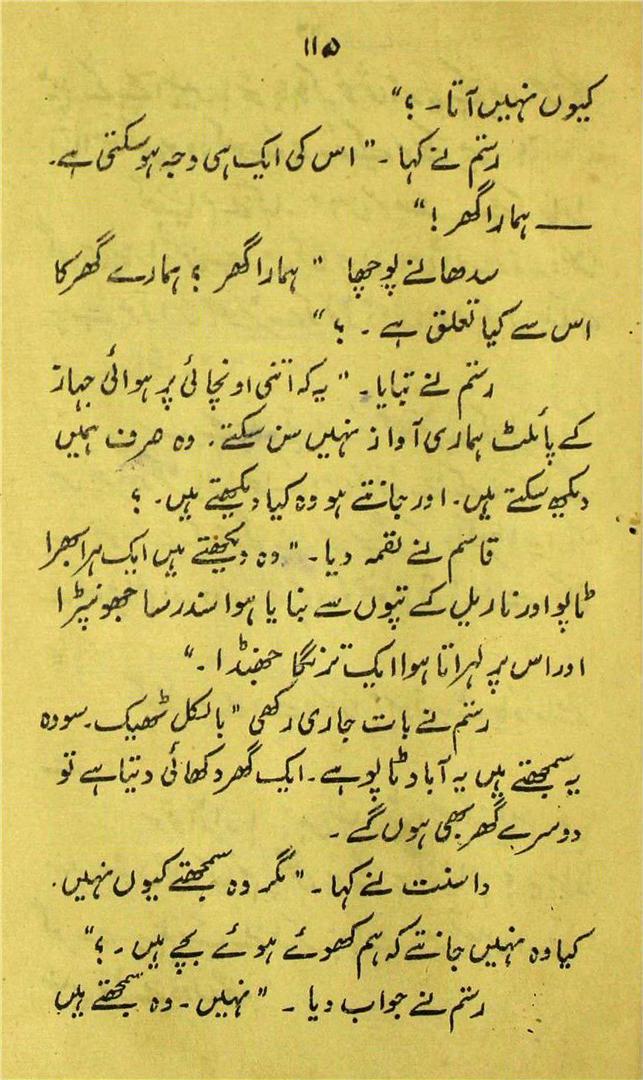 ۱۱۵
کیوں نہیں آتا۔ ؟“
رستم نے کہا۔ ”اس کی ایک ہی وجہ ہو سکتی ہے۔
— ہمارا گھر !“
سدھا نے پوچھا ”ہمارا گھر ؟ ہمارے گھر کا
اس سے کیا تعلق ہے ۔ ؟“
رستم نے بتایا۔ ”یہ کہ اتنی اونچائی پر ہوائی جہاز
کے پائلٹ ہماری آواز نہیں سن سکتے۔ وہ صرف ہمیں
دیکھ سکتے ہیں۔ اور جانتے ہو وہ کیا دیکھتے ہیں۔ ؟
قاسم نے لقمہ دیا۔ ”وہ دیکھتے ہیں ایک ہرا بھرا
ٹاپو اور ناریل کے پتوں سے بنایا ہوا سندر سا جھونپڑا
اور اس پر لہراتا ہوا ایک ترنگا جھنڈا۔“
رستم نے بات جاری رکھی ”بالکل ٹھیک۔ سو وہ
یہ سمجھتے ہیں یہ آباد ٹاپو ہے۔ ایک گھر دکھائی دیتا ہے تو
دوسرے گھر بھی ہوں گے ۔
داسنت نے کہا۔ ”مگر وہ سمجھتے کیوں نہیں۔
کیا وہ نہیں جانتے کہ ہم کھوئے ہوئے بچے ہیں ۔ ؟“
رستم نے جواب دیا ۔ ”نہیں۔ وہ سمجھتے ہیں